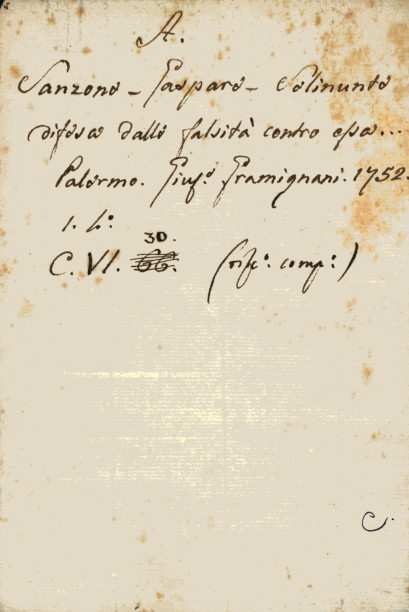 A.
Sanzone - Gaspare - Selinunte
difesa dalle falsità contro essa...
Palermo. Gius.e Gramignani. 1752.
1. 4.o
30.
C. VI. 66. (rife: comp:)
C.